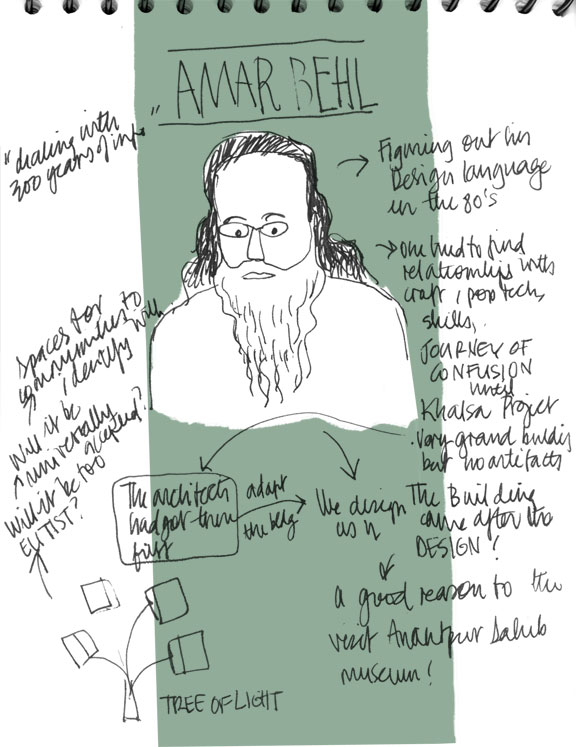 "AMAR BEHL
"dealing with
300 years of info
Figuring out his
Design language
in the 80's
one had to find
relationships with
craft, pop tech,
skills,
JOURNEY OF
CONFUSION
until
Khalsa Project
very grand buildg
but no artefacts
Spaces for
communities to
identify with
Will it be
universally
accepted?
Will it be too
ELITIST?
The architects
had got there
first
adapt
the bldg
We design
as
The Building
came after the
DESIGN!
a good reason to the
visit Anantpur Sahib
museum!
TREE OF LIGHT